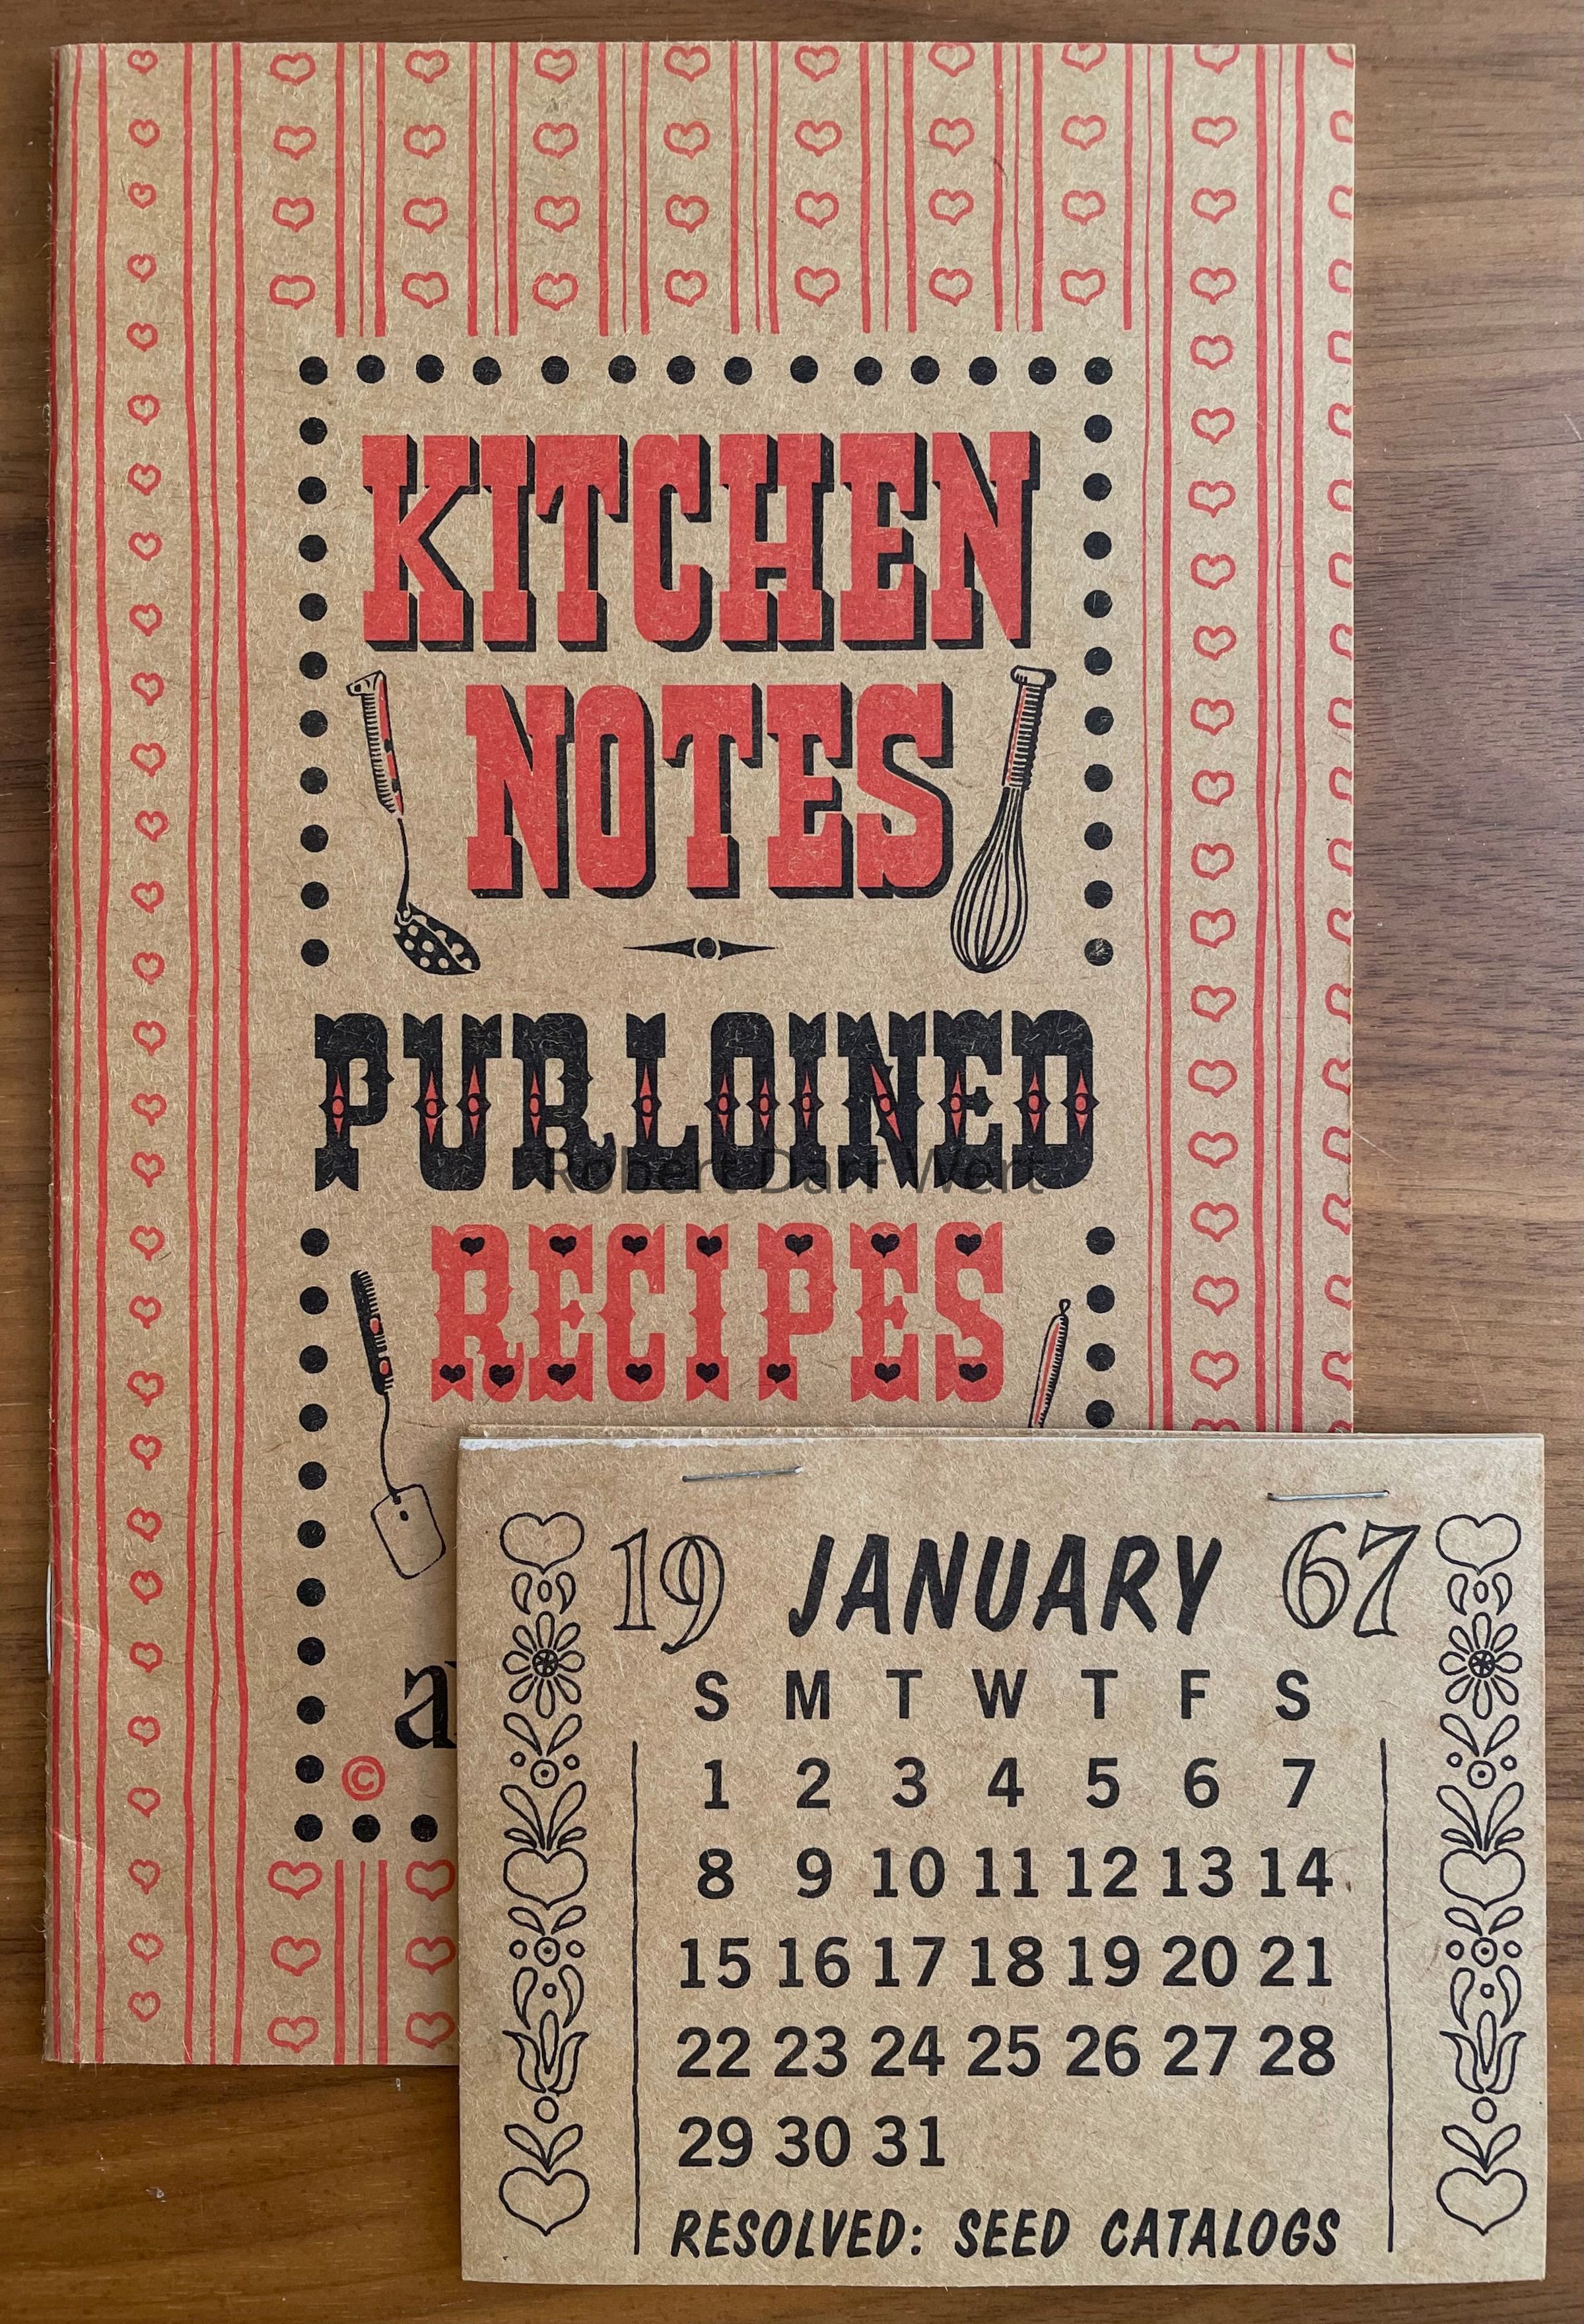 KITCHEN
NOTES
PURLOINED
Robert Darr Wert
RECIPES
©
19 JANUARY 67
S M T W T F S
1 2 3 4 5 6 7
8 9 10 11 12 13 14
15 16 17 18 19 20 21
22 23 24 25 26 27 28
29 30 31
RESOLVED: SEED CATALOGS